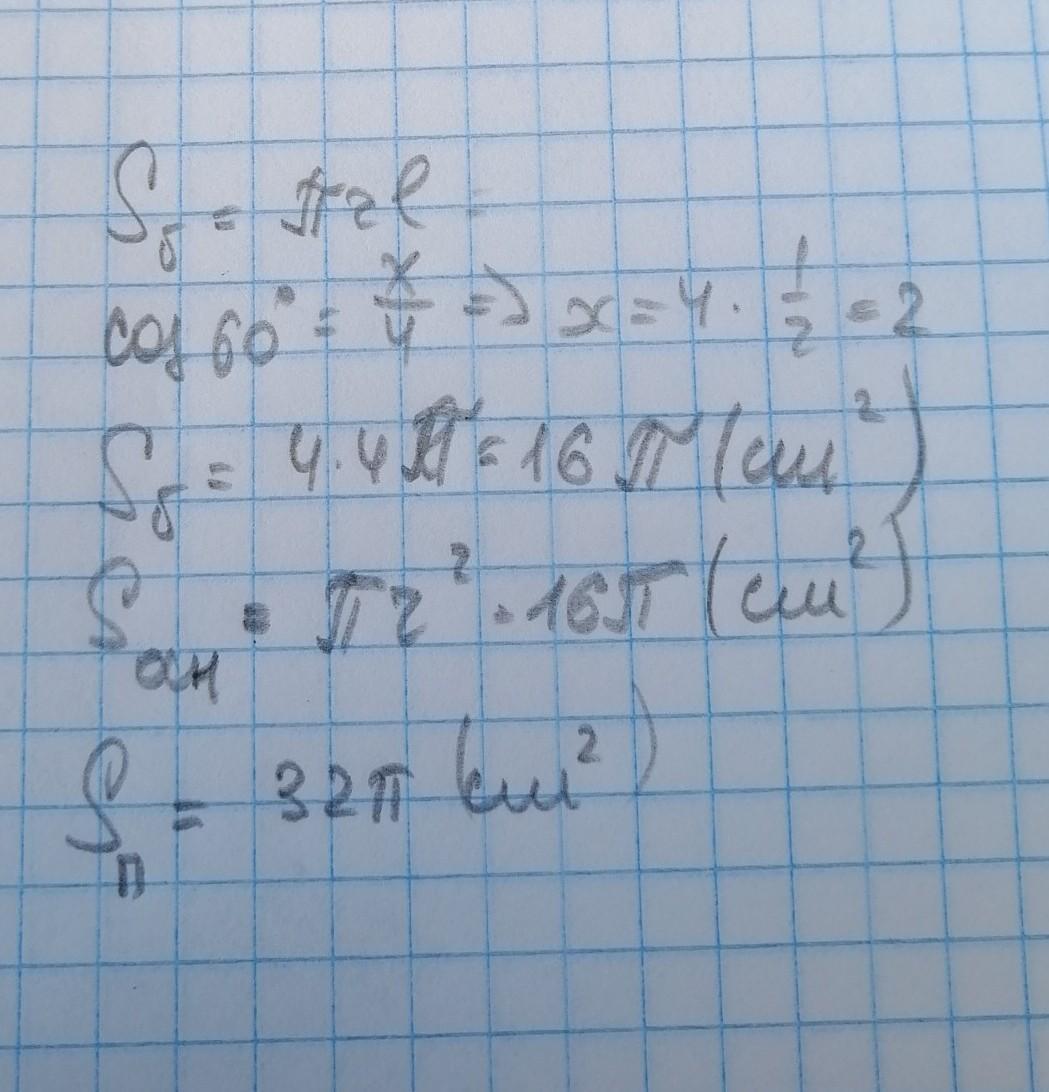 S_б = πrl =
cos 60° = x/4 => x = 4 · 1/2 = 2
S_б = 4·4π = 16π (см²)
S_он = πr² = 16π (см²)
S_п = 32π (см²)